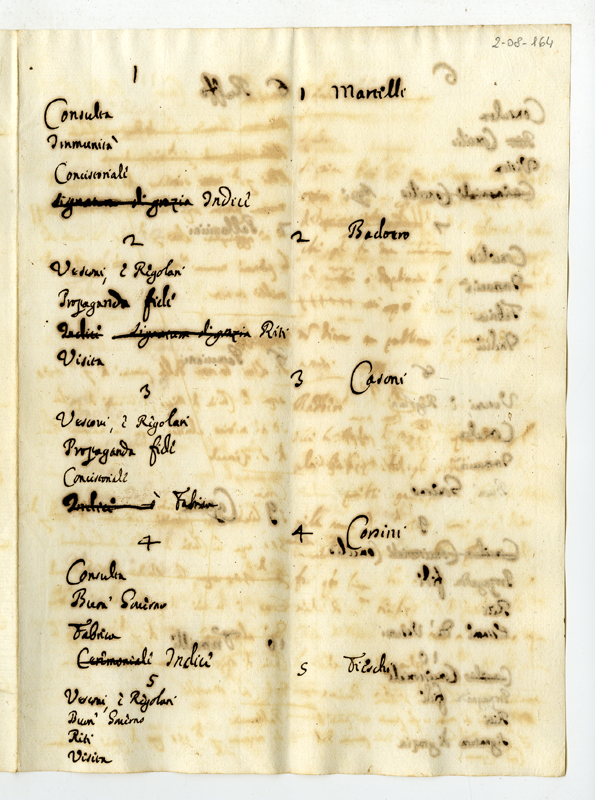 2-08-164
1
1 Martelli
Consulta
Immunità
Concistoriale
Signatura di grazia Indice
2
2 Badoero
Vescovi, e Rigolari
Propaganda fide
Indice Signatura di grazia Riti
Visita
3
3 Casoni
Vescovi, e Rigolari
Propaganda fide
Concistoriale
Indice ò Fabrica
4
4 Corsini
Consulta
Buon' Governo
Fabrica
Cerimoniale Indice
5
5 Fieschi
Vescovi, e Rigolari
Buon' Governo
Riti
Visita